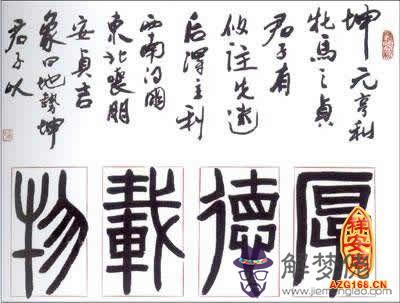 坤元亨利
牝馬之貞
君子有
攸往先迷
后得主利
西南得朋
東北喪朋
安貞吉
象曰地勢坤
君子以
厚德載物
祥安
AZG168.CN
解梦佬